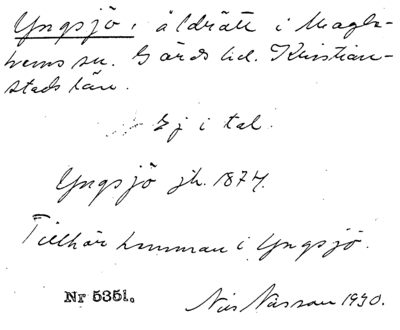 Yngsjö, äldrätt i Magle-
hems sn. Gärds hd. Kristian-
stads län.
Ej i tal.
Yngsjö jb. 1874.
Tillhör kvinnan i Yngsjö.
Nr 5351.
Nils Nässau 1930.